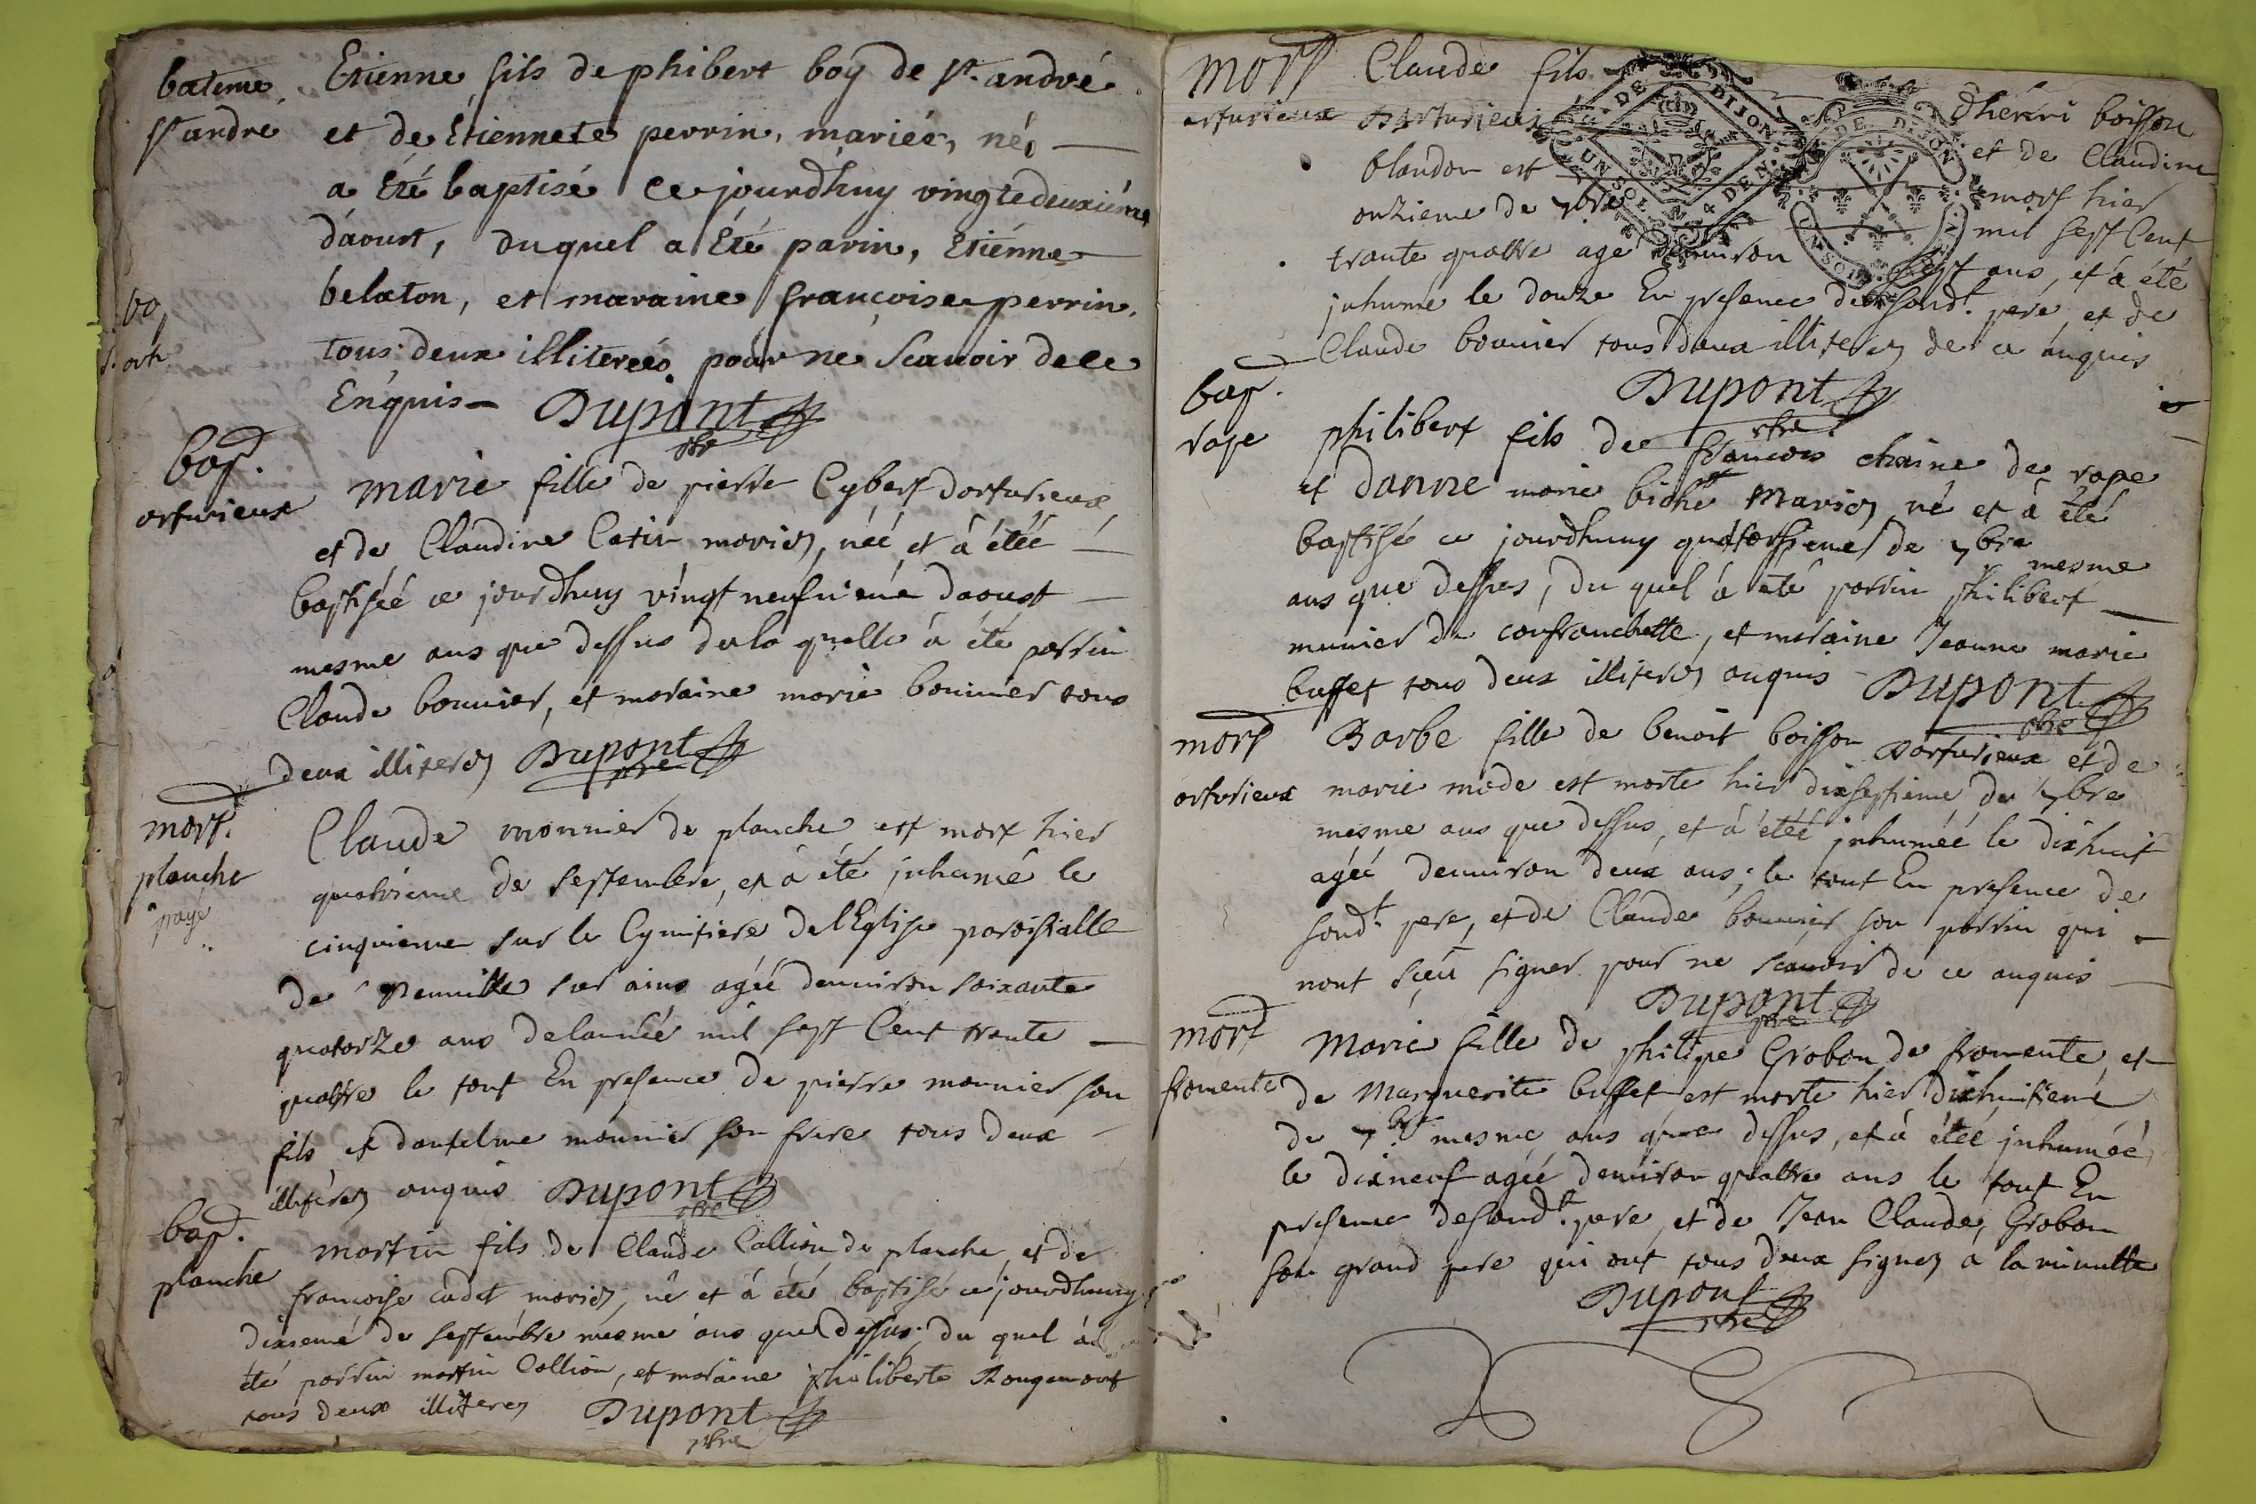 bateme
st andre
Etienne fils de phibert boy de st. andré
et de Etiennete perrin, mariés, né
a Eté baptisé Ce jourdhuy vingtedeuxiéme
d'aoust, duquel a Eté parin, Etiénne
belaton, et maraine françoise perrin,
tous deux illiterés pour ne scauoir de ce
Enquis Dupont
pbre
bap.
orturieux
marie fille de pierre Cybert dorturieux
et de Claudine Catin mariés, néé et à étéé
baptiséé ce jourdhuy vingt neufuiéme daoust
mesme ans que dessus de la quelle à été parrin
Claude bouuier, et maraine marie bouuier tous
deux illiterés Dupont
pbre
mort.
planche
payé
Claude monnier de planche est mort hier
quatrieme de septembre, et à été inhumé le
cinquieme sur le Cymitiere de l'Eglise paroissialle
de neuuille sur ains agéé denuiron soixante
quatorze ans de lannéé mil sept Cent trante
quattre le tout En presence de pierre monnier son
fils et dantelme monnier son frere tous deux
illiterés enquis Dupont
pbre
bap.
planche
martin fils de Claude Collion de planche, et de
francoise cadet mariés, né et à été baptisé ce jourdhuuy
dixiemé de septembre mesme ans que dessus du quel à
été parrin martin Collion, et maraine philiberte Rougemont
tous deux illiteres Dupont
pbre
mort
orturieux
Claude fils dhenri boisson
Dorturieux et de Claudine
blandon est mort hier
onzieme de 7bre mil sept Cent
trante quattre agé denuiron sept ans, et à été
inhumé le douze En presence de sond.t pere et de
Claude bouuier tous deux illiterés de ce enquis
DE DIJON
UN SOL
DE DIJON
UN SOL
Dupont
pbre
bap.
rape
philibert fils de francois chaine de rape
et danne marie bichet mariés né et à été
baptisé ce jourdhuuy quatorzieme de 7bre mesme
ans que dessus, du quel à été parrin philibert
munier de confranchette, et maraine Jeanne marie
buffet tous deux illiterés enquis Dupont
pbre
mort
orturieux
Barbe fille de benoit boisson Dorturieux et de
marie made est morte hier dixseptieme de 7bre
mesme ans que dessus, et à étéé inhuméé le dixhuit
agéé denuiron deux ans; le tout En presence de
sond.t pere, et de Claude bouuier son parrin qui
nont sceü signer pour ne scauoir de ce enquis
Dupont
pbre
mort
fromente
Marie fille de philipe Grobon de fromente, et
de Marguerite buffet est morte hier dixhuitiemé
de 7bre mesme ans que dessus, et à étéé inhuméé
le dixneuf agéé denuiron quattre ans le tout En
presence de sond.t pere, et de Jean Claude Grobon
son grand pere qui ont tous deux signés a la minutte
Dupont
pbre